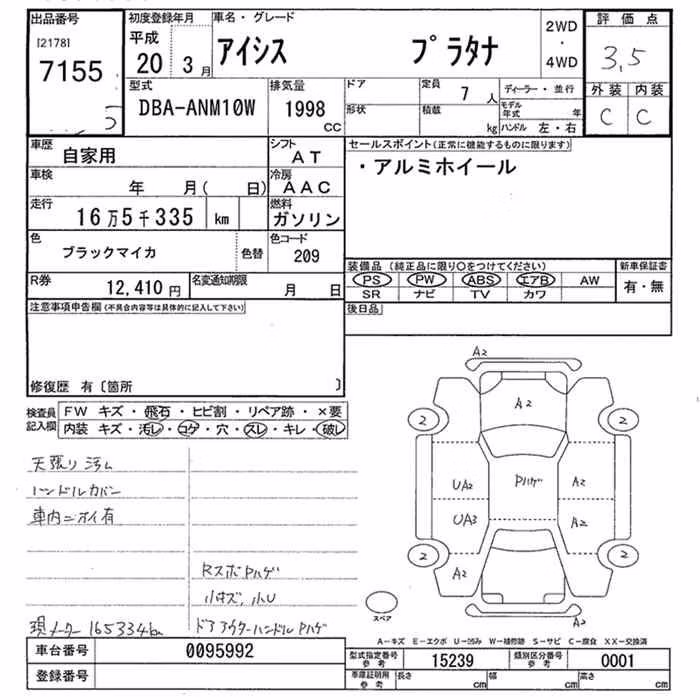 出品番号
[2178]
7155
初度登録年月
平成
20 3月
車名・グレード
アイシス プラタナ
2WD
・
4WD
評価点
3,5
外装 内装
C C
型式
DBA-ANM10W
排気量
1998
CC
ドア
形状
定員
7人
積載
kg
ディーラー・並行
モデル年式 年
ハンドル 左・右
車歴
自家用
シフト
AT
車検
年 月( 日)
冷房
AAC
走行
16万5千335 km
燃料
ガソリン
色
ブラックマイカ
色替
色コード
209
R券
12,410円
名変通知期限
月 日
セールスポイント(正常に機能するものに限ります)
・アルミホイール
装備品 (純正品に限り○をつけてください)
PS PW ABS エアB AW
SR ナビ TV カワ
新車保証書
有・無
後日品
注意事項申告欄(不具合内容等は具体的に記入して下さい)
修復歴 有〔箇所 〕
検査員記入欄
FW キズ・飛石・ヒビ割・リペア跡・×要
内装 キズ・汚レ・コゲ・穴・スレ・キレ・破レ
天張り汚レ
ハンドルカバー
車内ニオイ有
RスポPハゲ
小キズ,小U
現メーター165334km
ドアアウターハンドルPハゲ
A2
A2
2 2
UA2 Pハゲ A2
UA3 A2
2 2
A2
A2
スペア
A-キズ E-エクボ U-凹み W-補修跡 S-サビ C-腐食 XX-交換済
車台番号
0095992
登録番号
型式指定番号
参考
15239
類別区分番号
参考
0001
車庫証明用
参考
長さ cm
幅 cm
高さ cm